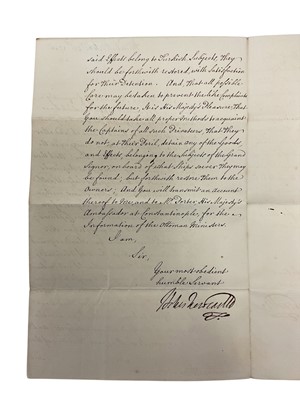 said Effects belong to Turkish Subjects, They
should be forthwith restored, with Satisfaction
for Their Detention: And, that all possible
Care may be taken to prevent the like Complaints
for the future, It is His Majesty's Pleasure, that
You should take all proper Methods to acquaint
the Captains of all such Privateers, that They
do not, at Their Peril, detain any of the Goods
and Effects, belonging to the Subjects of the Grand
Signor, on board of what Ships soever They may
be found; but forthwith restore them to the
Owners: And You will transmit an Account
thereof to Me, and to Mr. Porter His Majesty's
Ambassador at Constantinople, for the
Information of the Ottoman Ministers.
I am,
Sir,
Your most obedient
humble Servant
Holles Newcastle